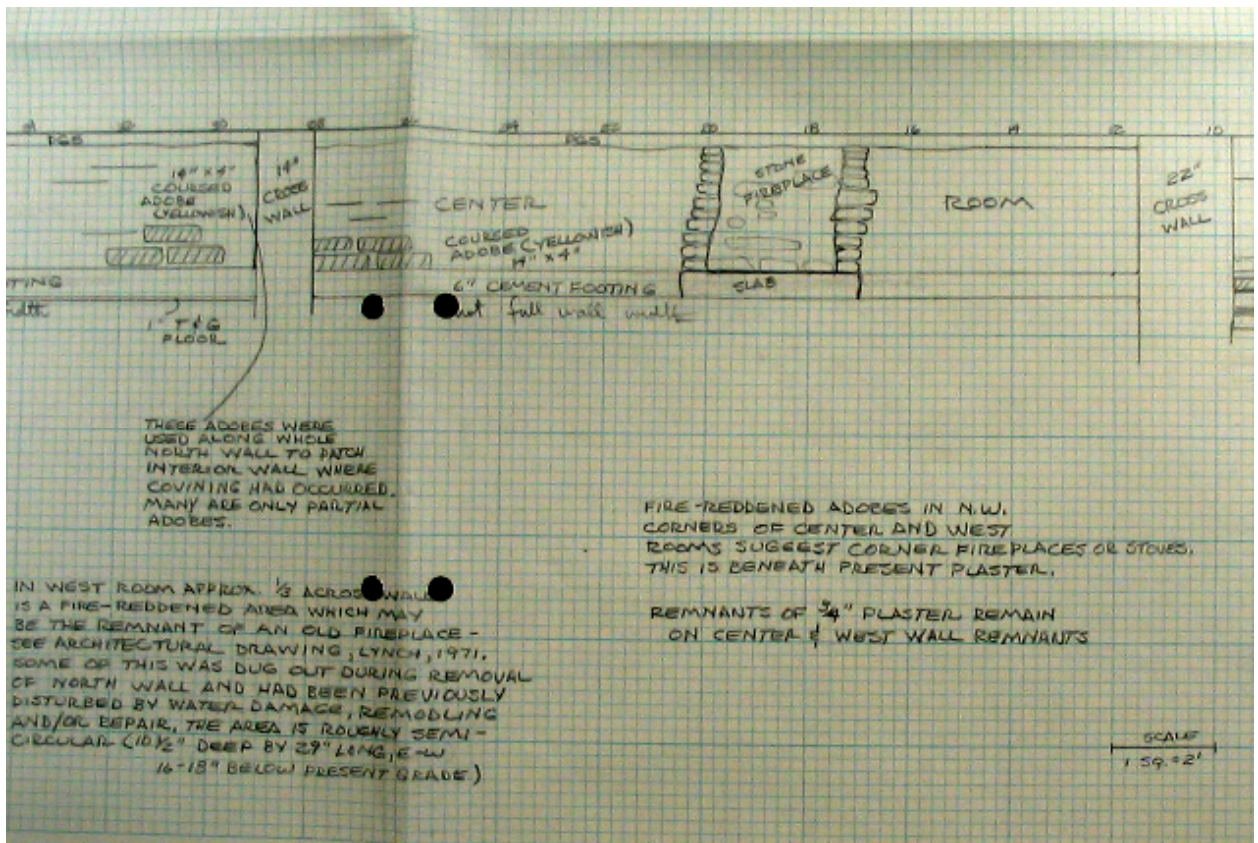 32 30 28 26 24 22 20 18 16 14 12 10
PGS
PGS
14" x 4"
COURSED
ADOBE
(YELLOWISH)
14"
CROSS
WALL
CENTER
COURSED
ADOBE (YELLOWISH)
14" x 4"
STONE
FIREPLACE
ROOM
22"
CROSS
WALL
TING
6" CEMENT FOOTING
not full wall width
SLAB
width
1" T & G
FLOOR
THESE ADOBES WERE
USED ALONG WHOLE
NORTH WALL TO PATCH
INTERIOR WALL WHERE
COVINING HAD OCCURRED.
MANY ARE ONLY PARTIAL
ADOBES.
FIRE-REDDENED ADOBES IN N.W.
CORNERS OF CENTER AND WEST
ROOMS SUGGEST CORNER FIREPLACES OR STOVES.
THIS IS BENEATH PRESENT PLASTER.
REMNANTS OF 3/4" PLASTER REMAIN
ON CENTER & WEST WALL REMNANTS
IN WEST ROOM APPROX. 1/3 ACROSS WALL
IS A FIRE-REDDENED AREA WHICH MAY
BE THE REMNANT OF AN OLD FIREPLACE -
SEE ARCHITECTURAL DRAWING, LYNCH, 1971.
SOME OF THIS WAS DUG OUT DURING REMOVAL
OF NORTH WALL AND HAD BEEN PREVIOUSLY
DISTURBED BY WATER DAMAGE, REMODLING
AND/OR REPAIR. THE AREA IS ROUGHLY SEMI-
CIRCULAR (10 1/2" DEEP BY 29" LONG, E-W
16-18" BELOW PRESENT GRADE)
SCALE
1 SQ. = 2'